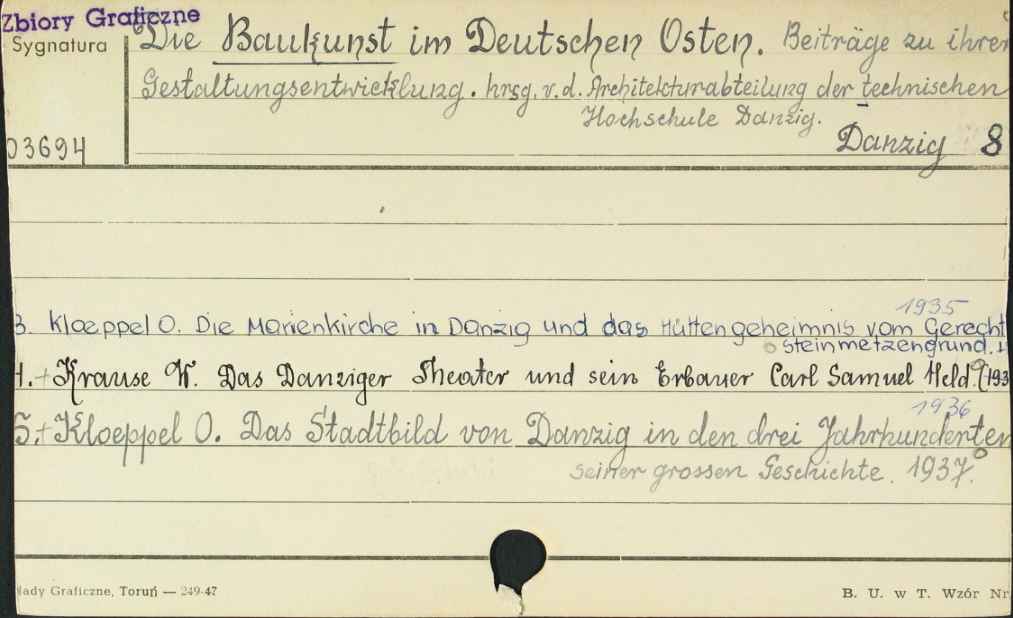 Zbiory Graficzne
Sygnatura
03694
Die Baukunst im Deutschen Osten. Beiträge zu ihrer
Gestaltungsentwicklung. hrsg. v. d. Architekturabteilung der technischen
Hochschule Danzig.
Danzig 8
1935
3. Kloeppel O. Die Marienkirche in Danzig und das Hüttengeheimnis vom Gerecht
Steinmetzengrund.
4. + Krause W. Das Danziger Theater und sein Erbauer Carl Samuel Held. (193
1936
5. + Kloeppel O. Das Stadtbild von Danzig in den drei Jahrhunderten
seiner grossen Geschichte. 1937.
łady Graficzne, Toruń — 249-47
B. U. w T. Wzór Nr